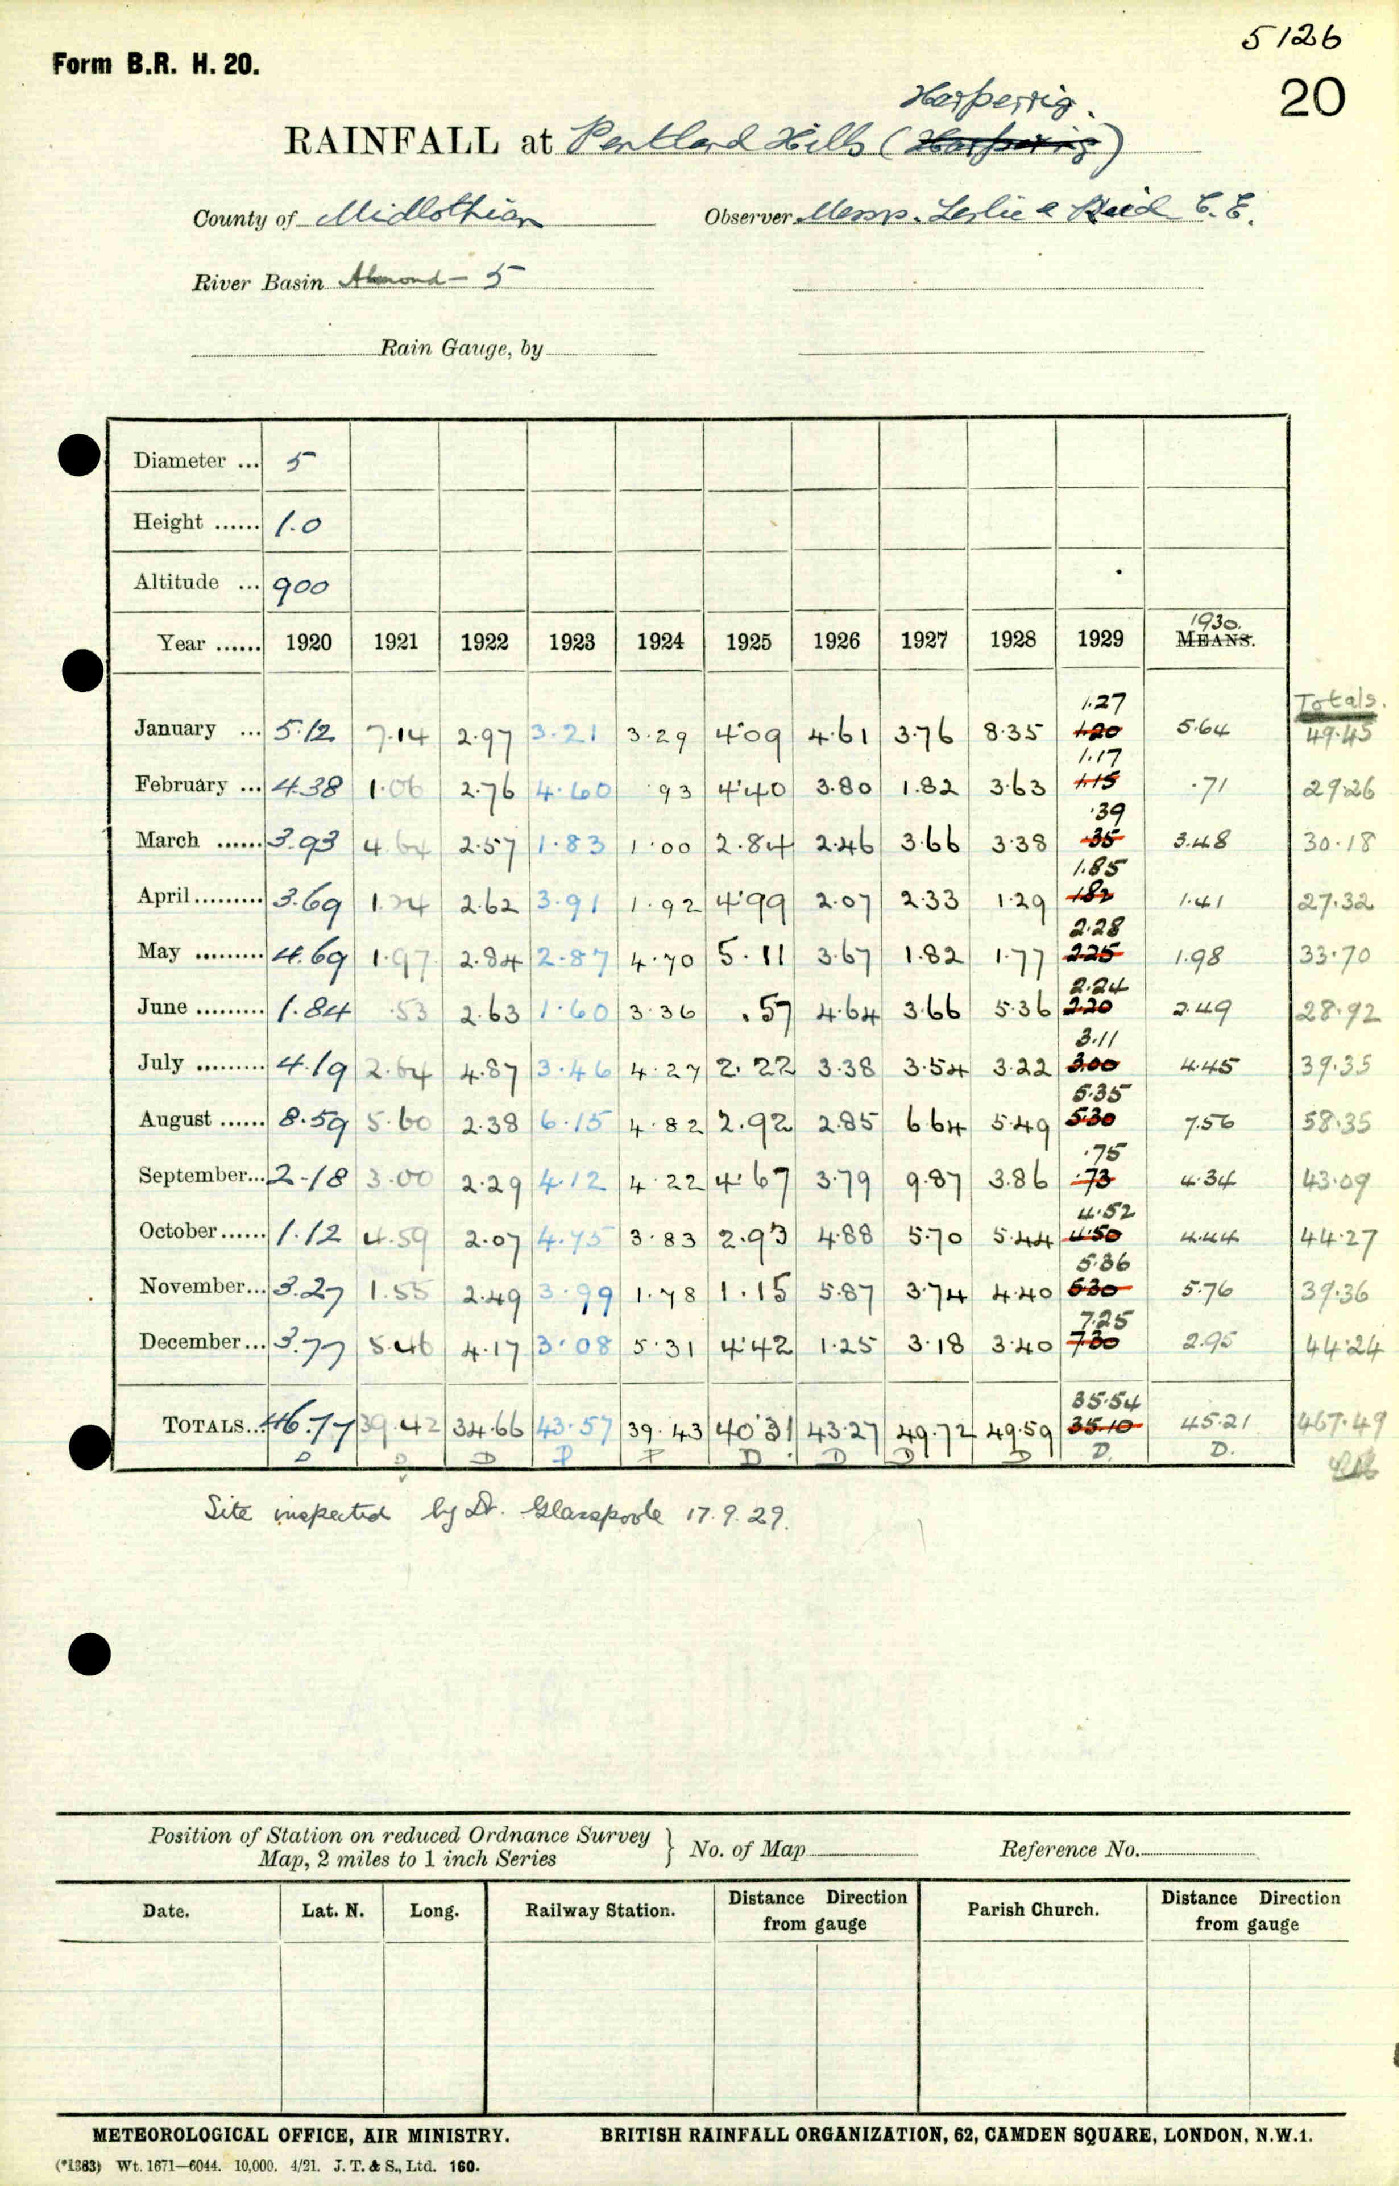 5126
Form B.R. H. 20.
20
Harperrig.
RAINFALL at Pentland Hills (Harperrig)
County of Midlothian Observer Messrs. Leslie & Reid C.E.
River Basin Almond - 5
Rain Gauge, by
Diameter ... 5
Height ...... 1.0
Altitude ... 900
1930.
Year ...... 1920 1921 1922 1923 1924 1925 1926 1927 1928 1929 MEANS.
Totals.
1.27
January ... 5.12 7.14 2.97 3.21 3.29 4.09 4.61 3.76 8.35 1.20 5.64 49.45
1.17
February ... 4.38 1.06 2.76 4.60 .93 4.40 3.80 1.82 3.63 1.15 .71 29.26
.39
March ...... 3.93 4.64 2.57 1.83 1.00 2.84 2.46 3.66 3.38 .35 3.48 30.18
1.85
April ......... 3.69 1.24 2.62 3.91 1.92 4.99 2.07 2.33 1.29 1.82 1.41 27.32
2.28
May ......... 4.69 1.97 2.84 2.87 4.70 5.11 3.67 1.82 1.77 2.25 1.98 33.70
2.24
June ......... 1.84 .53 2.63 1.60 3.36 .57 4.64 3.66 5.36 2.20 2.49 28.92
3.11
July ......... 4.19 2.64 4.87 3.46 4.27 2.22 3.38 3.54 3.22 3.00 4.45 39.35
5.35
August ...... 8.59 5.60 2.38 6.15 4.82 2.92 2.85 6.64 5.49 5.30 7.56 58.35
.75
September ... 2.18 3.00 2.29 4.12 4.22 4.67 3.79 9.87 3.86 .73 4.34 43.09
4.52
October ...... 1.12 4.59 2.07 4.75 3.83 2.93 4.88 5.70 5.44 4.50 4.44 44.27
5.36
November ... 3.27 1.55 2.49 3.99 1.78 1.15 5.87 3.74 4.40 5.30 5.76 39.36
7.25
December ... 3.77 5.46 4.17 3.08 5.31 4.42 1.25 3.18 3.40 7.30 2.95 44.24
35.54
TOTALS... 46.77 39.42 34.66 43.57 39.43 40.31 43.27 49.72 49.59 35.10 45.21 467.49
D D D P P D D D D D. D.
Site inspected by Dr. Glasspoole 17.9.29.
Position of Station on reduced Ordnance Survey
Map, 2 miles to 1 inch Series } No. of Map Reference No.
Date. Lat. N. Long. Railway Station. Distance Direction from gauge Parish Church. Distance Direction from gauge
METEOROLOGICAL OFFICE, AIR MINISTRY. BRITISH RAINFALL ORGANIZATION, 62, CAMDEN SQUARE, LONDON, N.W.1.
(*1383) Wt. 1671—6044. 10,000. 4/21. J. T. & S., Ltd. 160.